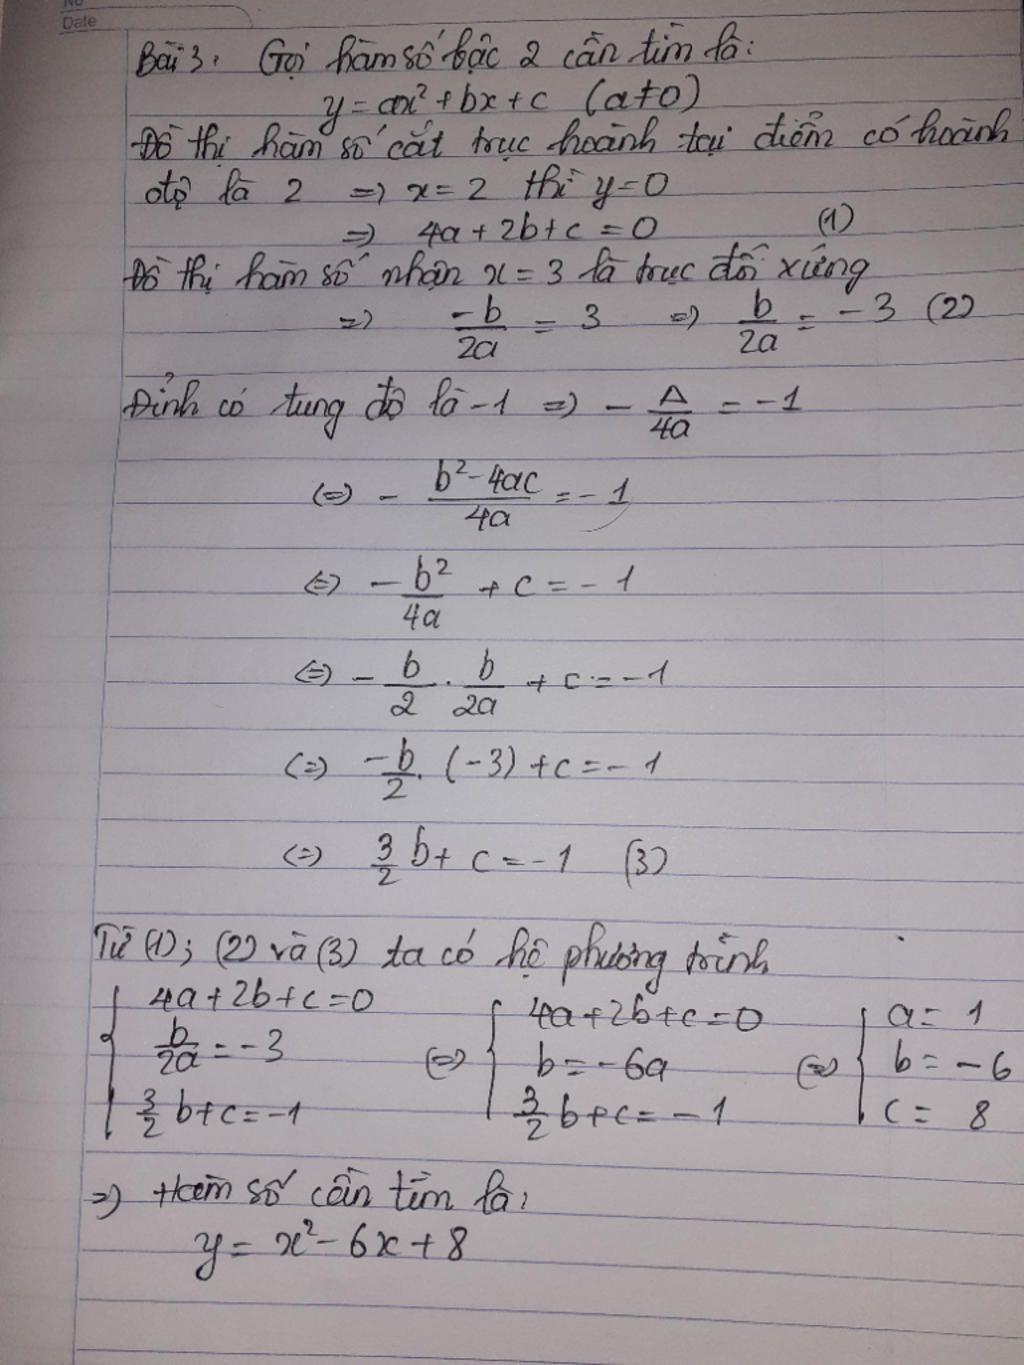 No
Date
Bài 3. Gọi hàm số bậc 2 cần tìm là:
y = ax² + bx + c (a ≠ 0)
Đồ thị hàm số cắt trục hoành tại điểm có hoành
độ là 2 => x = 2 thì y = 0
=> 4a + 2b + c = 0 (1)
Đồ thị hàm số nhận x = 3 là trục đối xứng
=> -b/2a = 3 => b/2a = -3 (2)
Đỉnh có tung độ là -1 => - Δ/4a = -1
(=) - (b² - 4ac)/4a = -1
(=) - b²/4a + c = -1
(=) - b/2 . b/2a + c = -1
(=) -b/2 . (-3) + c = -1
(=) 3/2 b + c = -1 (3)
Từ (1); (2) và (3) ta có hệ phương trình
{ 4a + 2b + c = 0 { 4a + 2b + c = 0 { a = 1
b/2a = -3 (=) b = -6a (=) b = -6
3/2 b + c = -1 3/2 b + c = -1 c = 8
=> Hàm số cần tìm là:
y = x² - 6x + 8